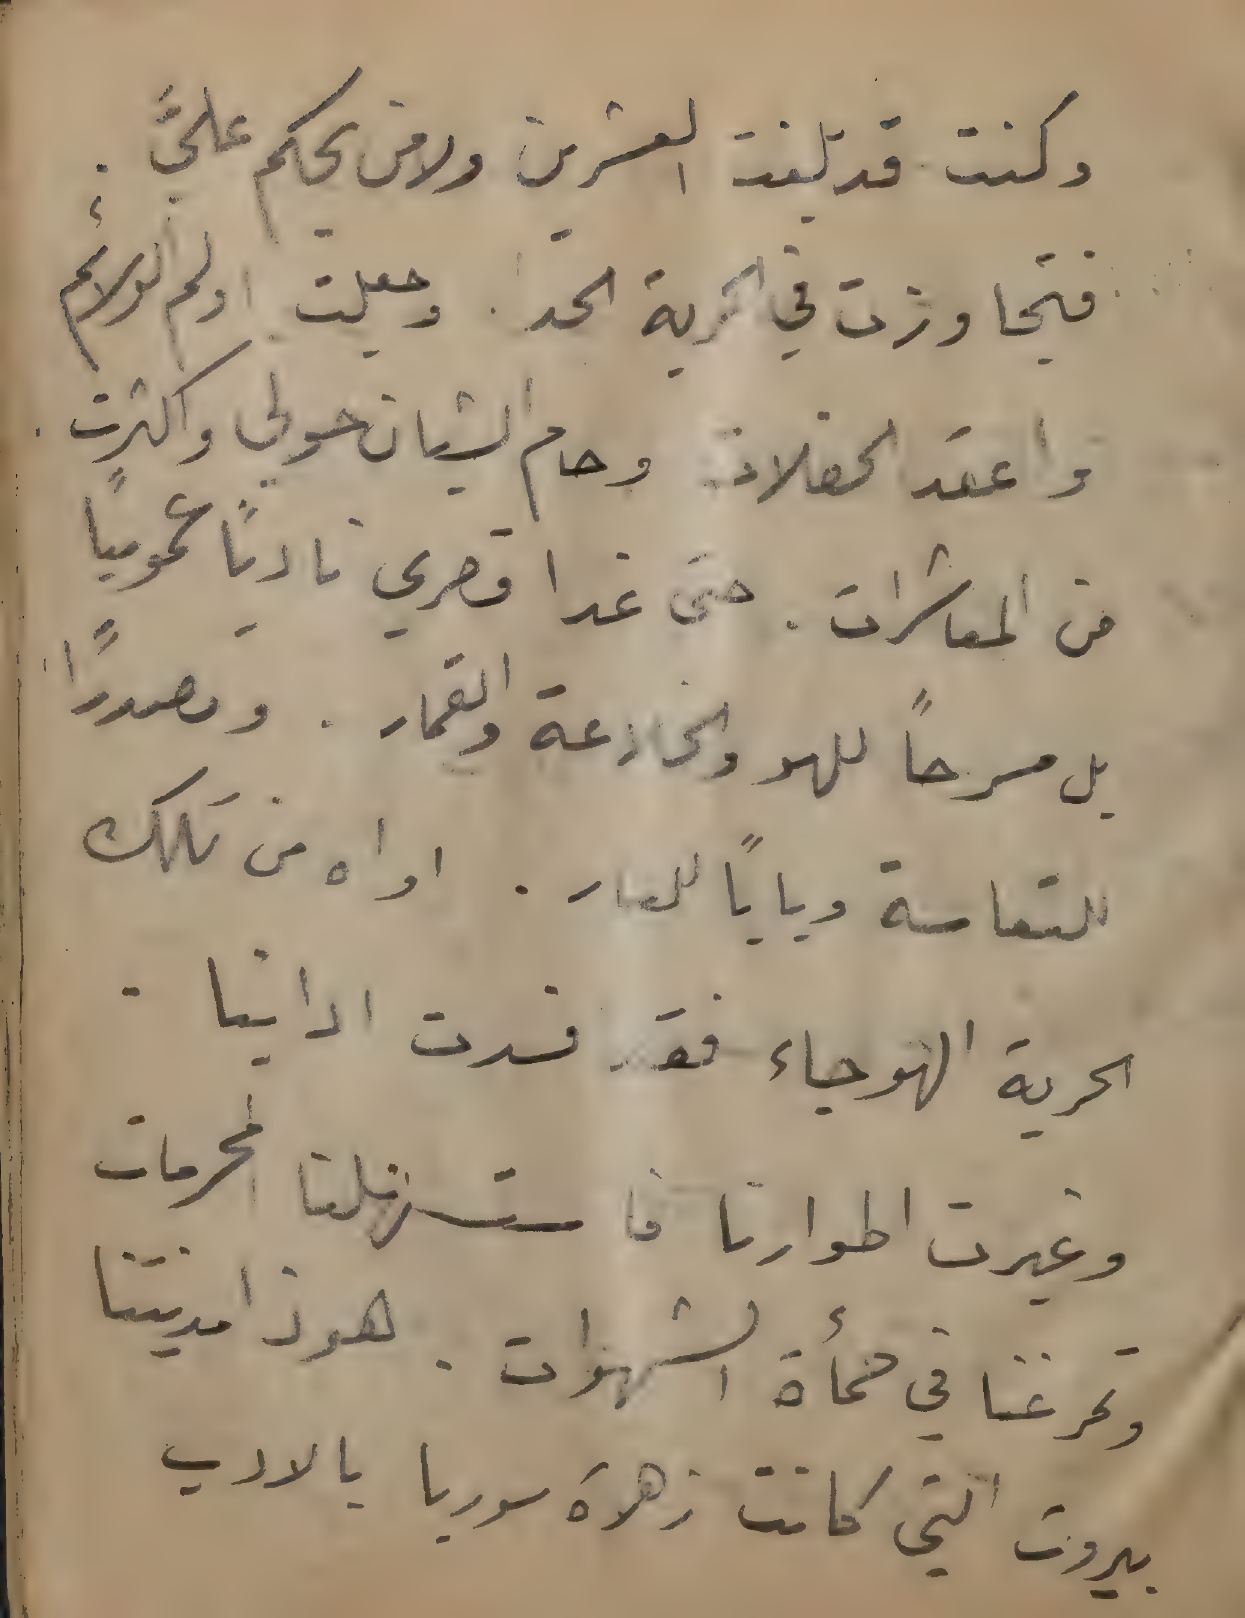 وكنت قد بلغت العشرين ولا من يحكم عليَّ .
فتجاوزت في الحرية الحد . وجعلت اولم الولائم
واعقد الحفلات وحام الشبان حولي واكثرت .
من المعاشرات . حتى غدا قصري ناديًا عموميًا
بل مسرحاً للهو والخلاعة والقمار . ومصدرًا
للتعاسة وبابًا للعار . اواه من تلك
الحرية الهوجاء فقد فسدت ادابنا .
وغيرت اطوارنا فاستسهلنا المحرمات
وتمرغنا في حمأة الشهوات . هوذا مدينتنا
بيروت التي كانت زهرة سوريا بالادب